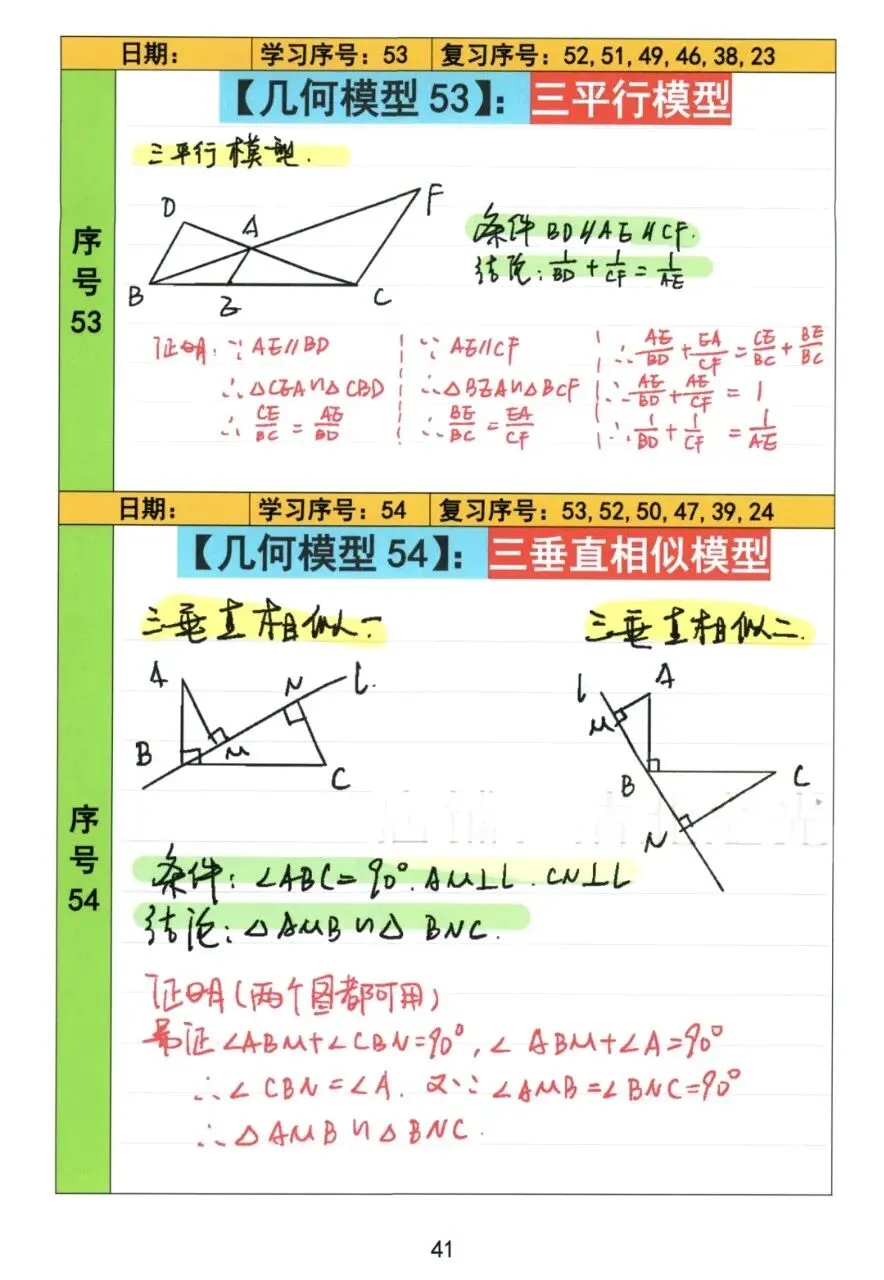 日期： 学习序号：53 复习序号：52, 51, 49, 46, 38, 23
【几何模型 53】：三平行模型
序号 53
三平行模型.
D A F
B E C
条件 BD∥AE∥CF.
结论：1/BD + 1/CF = 1/AE
证明：∵ AE∥BD
∴△CEA∽△CBD
∴ CE/BC = AE/BD
∵ AE∥CF
∴△BEA∽△BCF
∴ BE/BC = EA/CF
∴ AE/BD + EA/CF = CE/BC + BE/BC
∴ AE/BD + AE/CF = 1
∴ 1/BD + 1/CF = 1/AE
日期： 学习序号：54 复习序号：53, 52, 50, 47, 39, 24
【几何模型 54】：三垂直相似模型
序号 54
三垂直相似一
A N l.
B M C
三垂直相似二.
l A
M
B C
N
条件：∠ABC=90°.AM⊥l.CN⊥l
结论：△AMB∽△BNC.
证明(两个图都可用)
易证∠ABM+∠CBN=90°,∠ABM+∠A=90°
∴∠CBN=∠A. 又∵∠AMB=∠BNC=90°
∴△AMB∽△BNC.
41